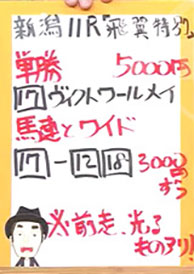 新潟11R『飛翼特別』
単勝 5000円
17 ヴィクトワールメイ
馬連とワイド
17-12 18 3000円ずつ
※前走、光る
ものアリ!